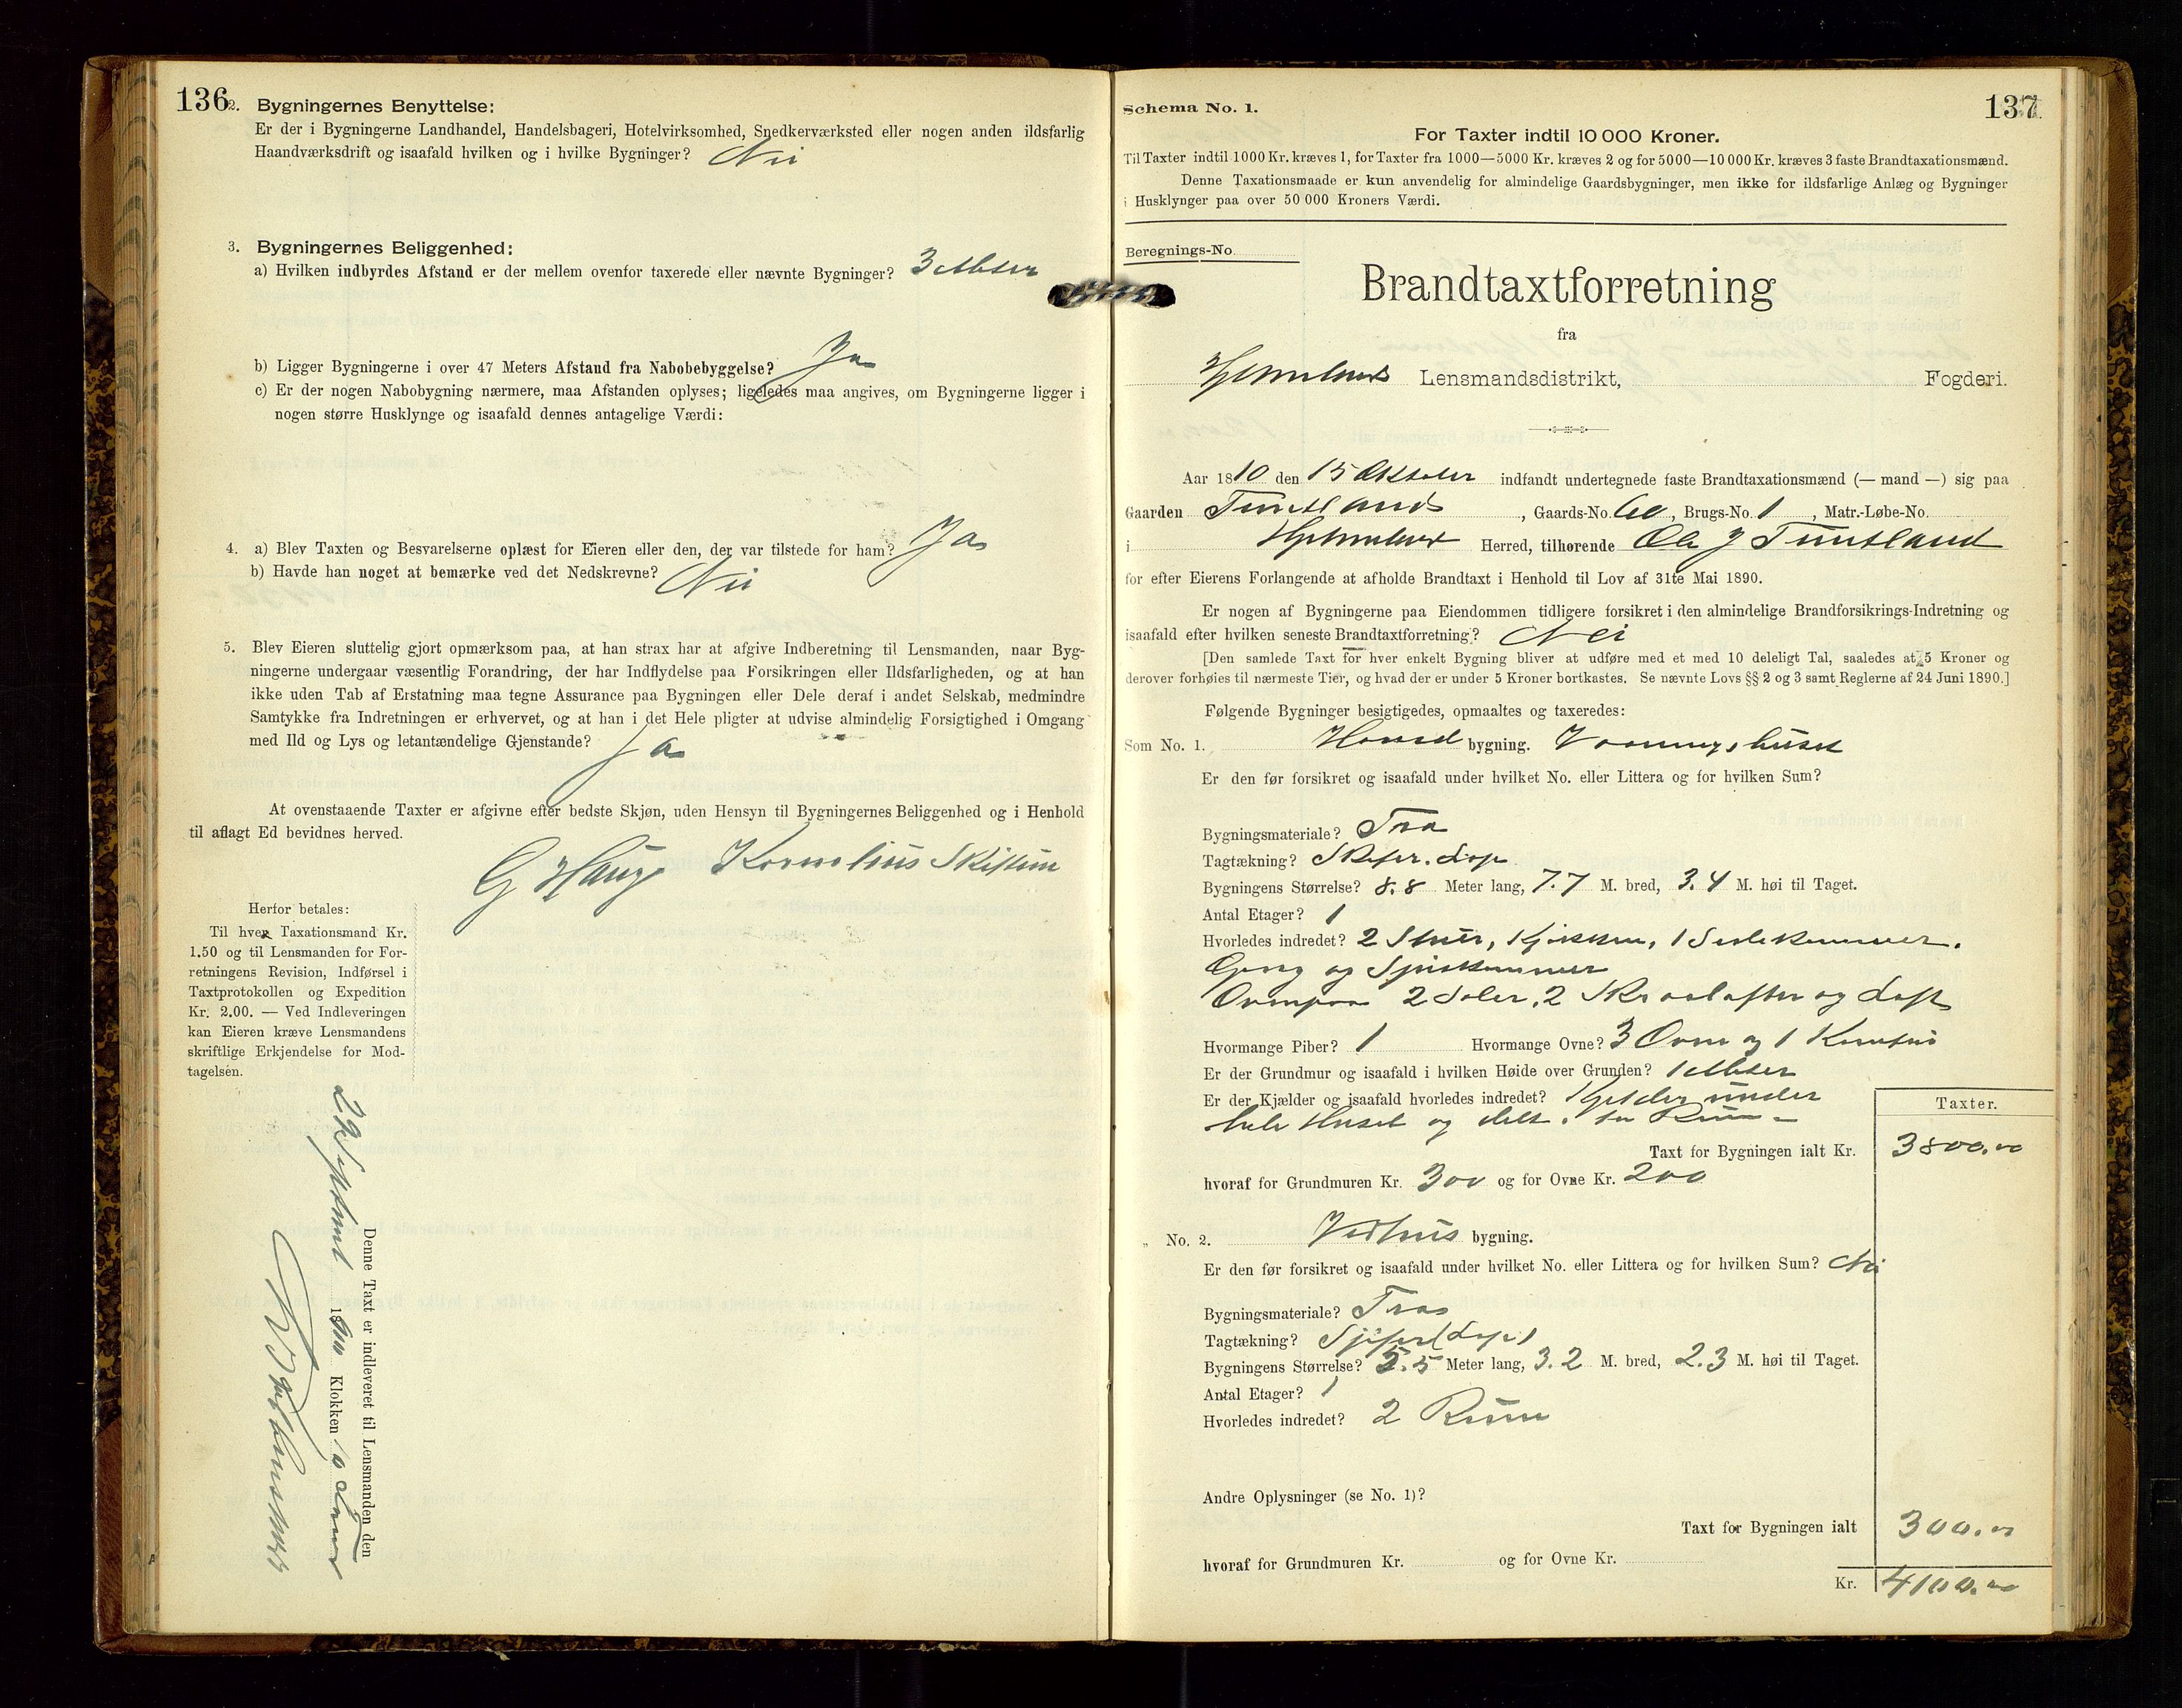 136
2. Bygningernes Benyttelse:
Er der i Bygningerne Landhandel, Handelsbageri, Hotelvirksomhed, Snedkerværksted eller nogen anden ildsfarlig
Haandværksdrift og isaafald hvilken og i hvilke Bygninger? Nei
3. Bygningernes Beliggenhed:
a) Hvilken indbyrdes Afstand er der mellem ovenfor taxerede eller nævnte Bygninger? 3 Meter
b) Ligger Bygningerne i over 47 Meters Afstand fra Nabobebyggelse? Ja
c) Er der nogen Nabobygning nærmere, maa Afstanden oplyses; ligeledes maa angives, om Bygningerne ligger i
nogen større Husklynge og isaafald dennes antagelige Værdi:
4. a) Blev Taxten og Besvarelserne oplæst for Eieren eller den, der var tilstede for ham? Ja
b) Havde han noget at bemærke ved det Nedskrevne? Nei
5. Blev Eieren sluttelig gjort opmærksom paa, at han strax har at afgive Indberetning til Lensmanden, naar Byg-
ningerne undergaar væsentlig Forandring, der har Indflydelse paa Forsikringen eller Ildsfarligheden, og at han
ikke uden Tab af Erstatning maa tegne Assurance paa Bygningen eller Dele deraf i andet Selskab, medmindre
Samtykke fra Indretningen er erhvervet, og at han i det Hele pligter at udvise almindelig Forsigtighed i Omgang
med Ild og Lys og letantændelige Gjenstande? Ja
At ovenstaaende Taxter er afgivne efter bedste Skjøn, uden Hensyn til Bygningernes Beliggenhed og i Henhold
til aflagt Ed bevidnes herved.
G Hauge Kornelius Skiftun
Herfor betales:
Til hver Taxationsmand Kr.
1.50 og til Lensmanden for For-
retningens Revision, Indførsel i
Taxtprotokollen og Expedition
Kr. 2.00. — Ved Indleveringen
kan Eieren kræve Lensmandens
skriftlige Erkjendelse for Mod-
tagelsen.
Denne Taxt er indleveret til Lensmanden den
1910 Klokken 10
Schema No. 1.
137
For Taxter indtil 10 000 Kroner.
Til Taxter indtil 1000 Kr. kræves 1, for Taxter fra 1000—5000 Kr. kræves 2 og for 5000—10 000 Kr. kræves 3 faste Brandtaxationsmænd.
Denne Taxationsmaade er kun anvendelig for almindelige Gaardsbygninger, men ikke for ildsfarlige Anlæg og Bygninger
i Husklynger paa over 50 000 Kroners Værdi.
Beregnings-No.
Brandtaxtforretning
fra
Hjelmeland Lensmandsdistrikt, Fogderi.
Aar 1810 den 15 Oktober indfandt undertegnede faste Brandtaxationsmænd (— mand —) sig paa
Gaarden Tuntland , Gaards-No. 60, Brugs-No. 1, Matr.-Løbe-No.
i Hjelmeland Herred, tilhørende Ole J Tuntland
for efter Eierens Forlangende at afholde Brandtaxt i Henhold til Lov af 31te Mai 1890.
Er nogen af Bygningerne paa Eiendommen tidligere forsikret i den almindelige Brandforsikrings-Indretning og
isaafald efter hvilken seneste Brandtaxtforretning? Nei
[Den samlede Taxt for hver enkelt Bygning bliver at udføre med et med 10 deleligt Tal, saaledes at 5 Kroner og
derover forhøies til nærmeste Tier, og hvad der er under 5 Kroner bortkastes. Se nævnte Lovs §§ 2 og 3 samt Reglerne af 24 Juni 1890.]
Følgende Bygninger besigtigedes, opmaaltes og taxeredes:
Som No. 1. Hoved bygning. Vaaningshuset
Er den før forsikret og isaafald under hvilket No. eller Littera og for hvilken Sum?
Bygningsmateriale? Træ
Tagtækning? Skifer.
Bygningens Størrelse? 8.8 Meter lang, 7.7 M. bred, 3.4 M. høi til Taget.
Antal Etager? 1
Hvorledes indredet? 2 Stuer, Kjøkken, 1 Sidekammer.
Gang og Spiskammer
Ovenpaa 2 Saler, 2 Skraalofter og Loft
Hvormange Piber? 1 Hvormange Ovne? 3 Ovne og 1 Komfur
Er der Grundmur og isaafald i hvilken Høide over Grunden? 1 Meter
Er der Kjælder og isaafald hvorledes indredet? Kjelder under
hele Huset og delt i to Rum
Taxter.
Taxt for Bygningen ialt Kr. 3800.00
hvoraf for Grundmuren Kr. 300 og for Ovne Kr. 200
" No. 2. Vedhus bygning.
Er den før forsikret og isaafald under hvilket No. eller Littera og for hvilken Sum? Nei
Bygningsmateriale? Træ
Tagtækning?
Bygningens Størrelse? 5.5 Meter lang, 3.2 M. bred, 2.3 M. høi til Taget.
Antal Etager? 1
Hvorledes indredet? 2 Rum
Andre Oplysninger (se No. 1)?
Taxt for Bygningen ialt 300.00
hvoraf for Grundmuren Kr. og for Ovne Kr.
Kr. 4100.00